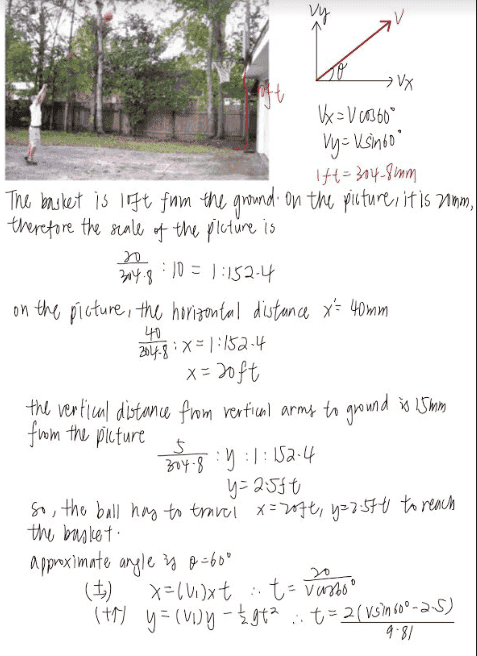 Vy
V
θ
Vx
10ft
Vx = V cos60°
Vy = Vsin60°
1ft = 304.8mm
The basket is 10ft from the ground. On the picture, it is 20mm,
therefore the scale of the picture is
20/304.8 : 10 = 1:152.4
on the picture, the horizontal distance x' = 40mm
40/304.8 : x = 1:152.4
x = 20ft
the vertical distance from vertical arms to ground is 15mm
from the picture
5/304.8 : y : 1 : 152.4
y = 2.5ft
So, the ball has to travel x = 20ft, y = 2.5ft to reach
the basket.
approximate angle is θ = 60°
(→+) x = (V₁)x t ∴ t = 20/Vcos60°
(+↑) y = (V₁)y - ½gt² ∴ t = 2(Vsin60° - 2.5)/9.81